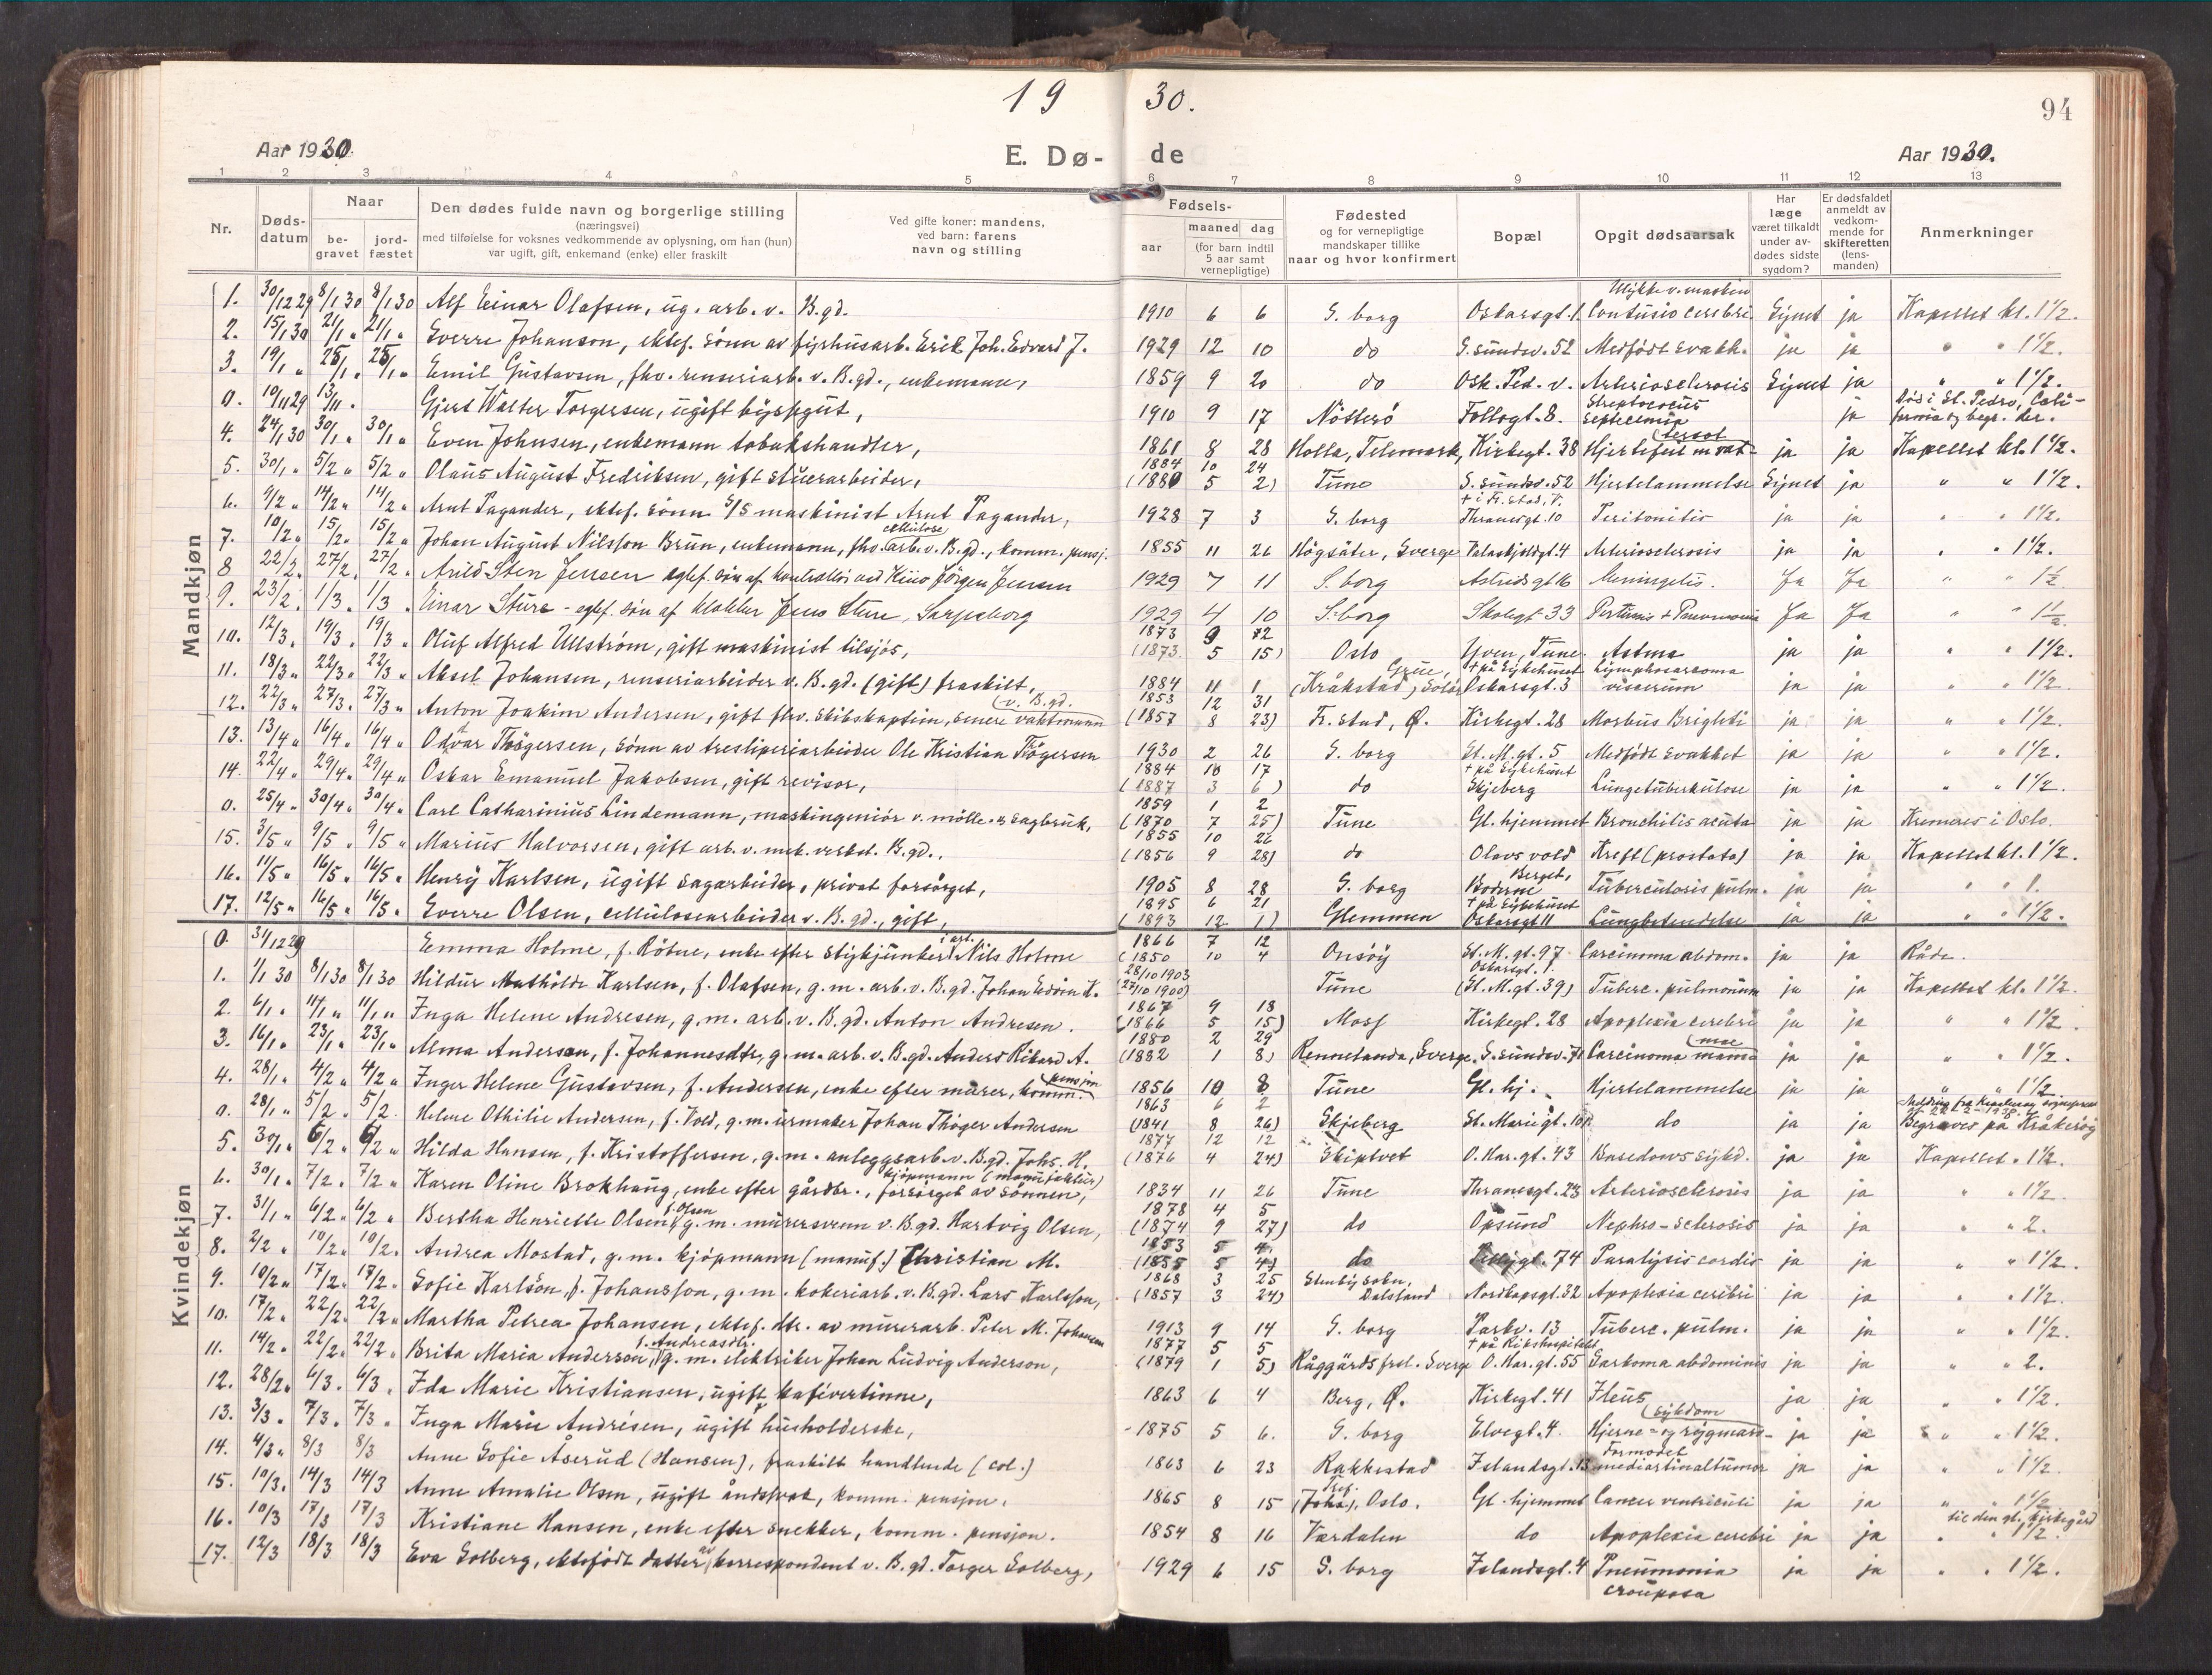 19 30.
94
Aar 1930. E. Dø- de Aar 1930.
1 2 3 4 5 6 7 8 9 10 11 12 13
Nr. Døds-datum Naar be-gravet jord-fæstet Den dødes fulde navn og borgerlige stilling (næringsvei) med tilføielse for voksnes vedkommende av oplysning, om han (hun) var ugift, gift, enkemand (enke) eller fraskilt Ved gifte koner: mandens, ved barn: farens navn og stilling Fødsels- aar maaned dag (for barn indtil 5 aar samt vernepligtige) Fødested og for vernepligtige mandskaper tillike naar og hvor konfirmert Bopæl Opgit dødsaarsak Har læge været tilkaldt under av-dødes sidste sygdom? Er dødsfaldet anmeldt av vedkom-mende for skifteretten (lens-manden) Anmerkninger
Mandkjøn
1. 30/12 29 8/1 30 8/1 30 Alf Einar Olafsen, ug. arb. v. B.gd. 1910 6 6 S. borg Oskarsgt. 1. Ulykke v. maskin Contusio cerebri. Synet ja Kapellet kl. 1 1/2.
2. 15/1 30 21/1 " 21/1 " Sverre Johanson, ektef. sønn av fyrhusarb. Erik Joh. Edvard J. 1929 12 10 do S. sundsv. 52 Medfødt svakh. ja ja " " 1 1/2.
3. 19/1 " 25/1 " 25/1 " Emil Gustavsen, fhv. renseriarb. v. B.gd., enkemann, 1859 9 20 do Osk. Ped. v. Arteriosclerosis Synet ja " " 1 1/2.
0. 10/11 29 13/11 " Gjert Walter Torgersen, ugift byssgut, 1910 9 17 Nötterö Follogt. 8. Streptococus septicemia ja Död i St. Pedro, Cali-fornia og begr. der.
4. 24/1 30 30/1 " 30/1 " Even Johnsen, enkemann tobakshandler, 1861 8 28 Holla, Telemark, Kirkegt. 38 Hjertefeil m. vat-tersot ja ja Kapellet kl. 1 1/2.
5. 30/1 " 5/2 " 5/2 " Olaus August Fredriksen, gift stuerarbeider, 1884 10 24 (1880 5 2) Tune S. sundsv. 52 Hjertelammelse Synet ja " " 1 1/2.
6. 9/2 " 14/2 " 14/2 " Arnt Pagander, ektef. sønn S/S maskinist Arnt Pagander, 1928 7 3 S. borg + i Fr. stad, V. Thranesgt. 10 Peritonitis ja ja " " 1 1/2.
7. 10/2 " 15/2 " 15/2 " Johan August Nilsson Brun, enkemann, fhv. cellulose arb. v. B.gd., komm. pensj. 1855 11 26 Högsäter, Sverge Valaskjoldgt. 4 Arteriosclerosis ja ja " " 1 1/2.
8 22/2 " 27/2 " 27/2 " Arild Sten Jensen egtef. søn af kontrollør ved Kino Jørgen Jensen 1929 7 11 S. borg Astridsgt 16 Meningitis. Ja Ja " " 1 1/2
9. 23/2 " 1/3 " 1/3 " Einar Sture - egtef. søn af klokker Jens Sture, Sarpsborg 1929 4 10 S. borg Skolegt 33 Pertussis + Pneumonia Ja Ja " " 1 1/2.
10. 12/3 " 19/3 " 19/3 " Oluf Alfred Ullström, gift maskinist tilsjös, 1873 9 12 (1873 5 15) Oslo Yven, Tune. Astma ja ja " " 1 1/2.
11. 18/3 " 22/3 " 22/3 " Aksel Johansen, renseriarbeider v. B.gd. (gift) fraskilt, 1884 11 1 Grue, (Kråkstad) Solör + på Sykehuset Oskarsgt. 3 Lymphosarcoma viscerum ja ja " " 1 1/2
12. 22/3 " 27/3 " 27/3 " Anton Joakim Andersen, gift fhv. skibskaptein, senere vaktmann v. B.gd. 1853 12 31 (1857 8 23) Fr. stad, Ø. Kirkegt. 28 Morbus Brighti ja ja " " 1 1/2.
13. 13/4 " 16/4 " 16/4 " Odvar Thögersen, sønn av tresliperiarbeider Ole Kristian Thögersen 1930 2 26 S. borg St. M. gt. 5 Medfödt svakhet ja ja " " 1 1/2.
14. 22/4 " 29/4 " 29/4 " Oskar Emanuel Jakobsen, gift revisor, 1884 10 17 (1887 3 6) do + på Sykehuset Skjeberg Lungetuberkulose ja ja " " 1 1/2.
0. 25/4 " 30/4 " 30/4 " Carl Catharinius Lindemann, maskingeniör v. mölle- & sagbruk, 1859 1 2 (1870 7 25) Tune Gl. hjemmet Bronchitis acuta ja ja Kremeres i Oslo.
15. 3/5 " 9/5 " 9/5 " Marius Halvorsen, gift arb. v. mek. verkst. B.gd., 1855 10 26 (1856 9 28) do Olavs vold Kreft (prostata) ja ja Kapellet kl. 1 1/2.
16. 11/5 " 16/5 " 16/5 " Henry Karlsen, ugift sagarbeider, privat forsörget, 1905 8 28 S. borg Berget, Boderne Tuberculosis pulm. ja ja " " 1.
17. 12/5 " 16/5 " 16/5 " Sverre Olsen, cellulosearbeider v. B.gd., gift, 1895 6 21 (1893 12 1) Glemmen + på Sykehuset Oskarsgt 11 Lungbetendelse ja ja " " 1 1/2.
Kvindekjøn
0. 31/12 29 Emma Holme, f. Rötne, enke efter stykjunker, Nils Holme 1866 7 12 (1850 10 4 Onsöy St. M. gt. 97 Carcinoma abdom. ja ja Råde.
1. 1/1 30 8/1 30 8/1 30 Hildur Mathilde Karlsen, f. Olafsen, g. m. arb. v. B.gd. Johan Edvin K. 28/10 1903 (27/10 1900) Tune Oskarsgt. 1. (St. M. gt. 39) Tuberc. pulmonum ja ja Kapellet kl. 1 1/2.
2. 6/1 " 11/1 " 11/1 " Inga Helene Andresen, g. m. arb. v. B.gd. Anton Andresen. 1867 9 18 (1866 5 15) Moss Kirkegt. 28 Apoplexia cerebri ja ja " " 1 1/2.
3. 16/1 " 23/1 " 23/1 " Alma Anderson, f. Johannesdtr, g. m. arb. v. B.gd. Anders Rikard A. 1880 2 29 (1882 1 8) Rennelanda, Sverge. S. sundsv. 71 Carcinoma mammae ja ja " " 1 1/2.
4. 28/1 " 4/2 " 4/2 " Inger Helene Gustavsen, f. Andersen, enke efter murer, komm. pensjon 1856 10 8 Tune Gl. hj. Hjertelammelse ja ja " " 1 1/2
0. 28/1 " 5/2 " 5/2. Helene Othilie Andersen, f. Vold, g. m. urmaker Johan Thöger Andersen 1863 6 2 (1841 8 26) Skjeberg St. Marie gt. do ja ja Begraves på Kråkerøy
5. 30/1 " 6/2 " 6/2 " Hilda Hansen, f. Kristoffersen, g. m. anleggsarb. v. B.gd. Johs. H. 1877 12 12 (1876 4 24) Skiptvet O. Har. gt. 43 Basedows sykd. ja ja Kapellet " 1 1/2.
6. 30/1 " 7/2 " 7/2 " Karen Oline Brokhaug, enke efter gårdbr., kjöpmann (manufaktur) forsörget av sönnen, 1834 11 26 Tune Thranesgt. 23 Arteriosclerosis ja ja " " 1 1/2
7. 31/1 " 6/2 " 6/2 " Bertha Henriette Olsen, f. Olsen g. m. murersvenn v. B.gd. Hartvig Olsen, 1878 4 5 (1874 9 27) do Opsund Nephro-sclerosis ja ja " " 2.
8. 2/2 " 10/2 " 10/2 " Andrea Mostad, g. m. kjöpmann (manuf.) Christian M. 1853 5 4 (1855 5 4) do 74 Paralysis cordis ja ja " " 1 1/2.
9. 10/2 " 17/2 " 17/2 " Sofie Karlson, f. Johansson, g. m. kokeriarb. v. B.gd. Lars Karlsson, 1868 3 25 (1857 3 24) Stenby sokn, Dalsland Nordkapsgt. 32 Apoplexia ceribri ja ja " " 1 1/2.
10. 17/2 " 22/2 " 22/2 " Martha Petrea Johansen, ektef. dtr. av murerarb. Peter M. Johansen 1913 9 14 S. borg Parkv. 13 Tuberc. pulm. ja ja " " 1 1/2.
11. 14/2 " 22/2 " 22/2 " Brita Maria Anderson, f. Andreasdtr. g. m. elektriker Johan Ludvig Anderson, 1877 5 5 (1879 1 5) Råggärds frsl. Sverge + på Rikshospitalet O. Har. gt. 55 Sarkoma abdominis ja ja " " 2.
12. 28/2 " 6/3 " 6/3 " Ida Marie Kristiansen, ugift kafévertinne, 1863 6 4 Berg, Ø. Kirkegt. 41 Ileus ja ja " " 1 1/2.
13. 3/3 " 7/3 " 7/3 " Inga Marie Andrésen, ugift husholderske, 1875 5 6. S. borg Elvegt. 4. Hjerne- og rygmarg-sykdom ja ja " " 1 1/2.
14. 4/3 " 8/3 8/3 Anne Sofie Åserud (Hansen), fraskilt handlende (col.) 1863 6 23 Rakkestad Islandsgt. 13 Formodet mediastinaltumor ja ja " " 1 1/2
15. 10/3 " 14/3 14/3 Anne Amalie Olsen, ugift åndssvak, komm. pensjon. 1865 8 15 (Johs), Oslo. Gl. hjemmet Cancer ventriculi ja ja " " 1 1/2
16. 10/3 17/3 17/3 Kristiane Hansen, enke efter snekker, komm. pensjon. 1854 8 16 Værdalen do Apoplexia cerebri ja ja til den gl. kirkegård " " 1 1/2.
17. 12/3 18/3 18/3 Eva Solberg, ektefödt datter av korrespondent v. B.gd. Torger Solberg, 1929 6 15 S. borg Islandsgt. 4 Pneumonia crouposa ja ja " " 1 1/2.